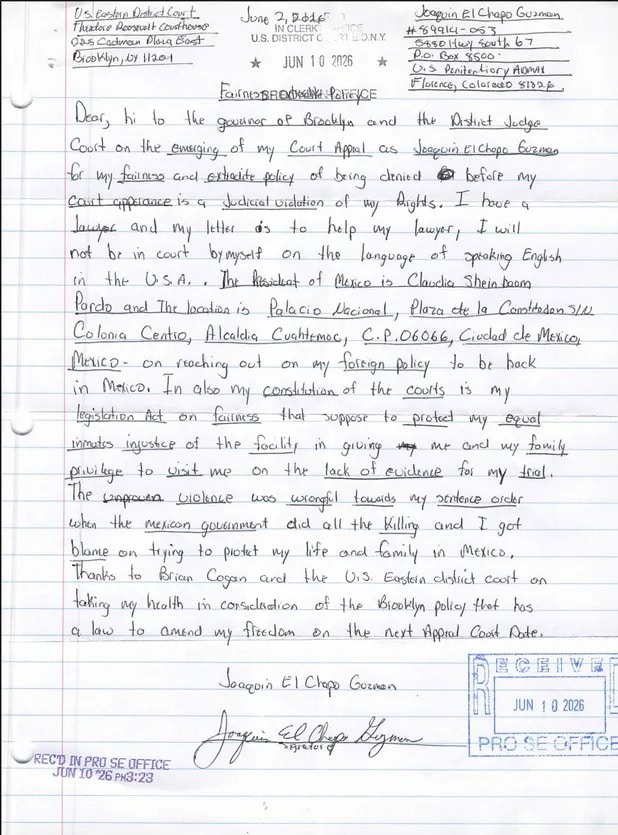 U.S Eastern District Court
Theodore Roosevelt Courthouse
225 Cadman Plaza East
Brooklyn, NY 11201
June 2, 2026
IN CLERK'S OFFICE
U.S. DISTRICT COURT E.D.N.Y.
★ JUN 10 2026 ★
BROOKLYN OFFICE
Joaquin El Chapo Guzman
#89914-053
5880 Hwy South 67
P.O. Box 8500
U.S Penitentiary ADMAX
Florence, Colorado 81226
Fairness Policy
Dear, hi to the governor of Brooklyn and the District Judge
Court on the emerging of my Court Appral as Joaquin El Chapo Guzman
for my fairness and extradite policy of being denied before my
court apperance is a Judicial violation of my Rights. I have a
lawyer and my letter is to help my lawyer, I will
not be in court by myself on the language of speaking English
in the U.S.A.. The President of Mexico is Claudia Sheinbaum
Pardo and The location is Palacio Nacional, Plaza de la Constitucion S/N
Colonia Centro, Alcaldia Cuahtemoc, C.P.06066, Ciudad de Mexico,
Mexico - on reaching out on my foreign policy to be back
in Mexico. In also my constitution of the courts is my
legislation Act on fairness that suppose to protect my equal
inmates injustice of the facility in giving me and my family
privilege to visit me on the lack of evidence for my trial.
The unproven violence was wrongful towards my sentence order
when the mexican government did all the killing and I got
blame on trying to protect my life and family in Mexico.
Thanks to Brian Cogan and the U.S. Eastern district court on
taking my health in consideration of the Brooklyn policy that has
a law to amend my freedom on the next Appral Court Date.
Joaquin El Chapo Guzman
Joaquin El Chapo Guzman
RECEIVED
JUN 10 2026
PRO SE OFFICE
REC'D IN PRO SE OFFICE
JUN 10 '26 PM3:23